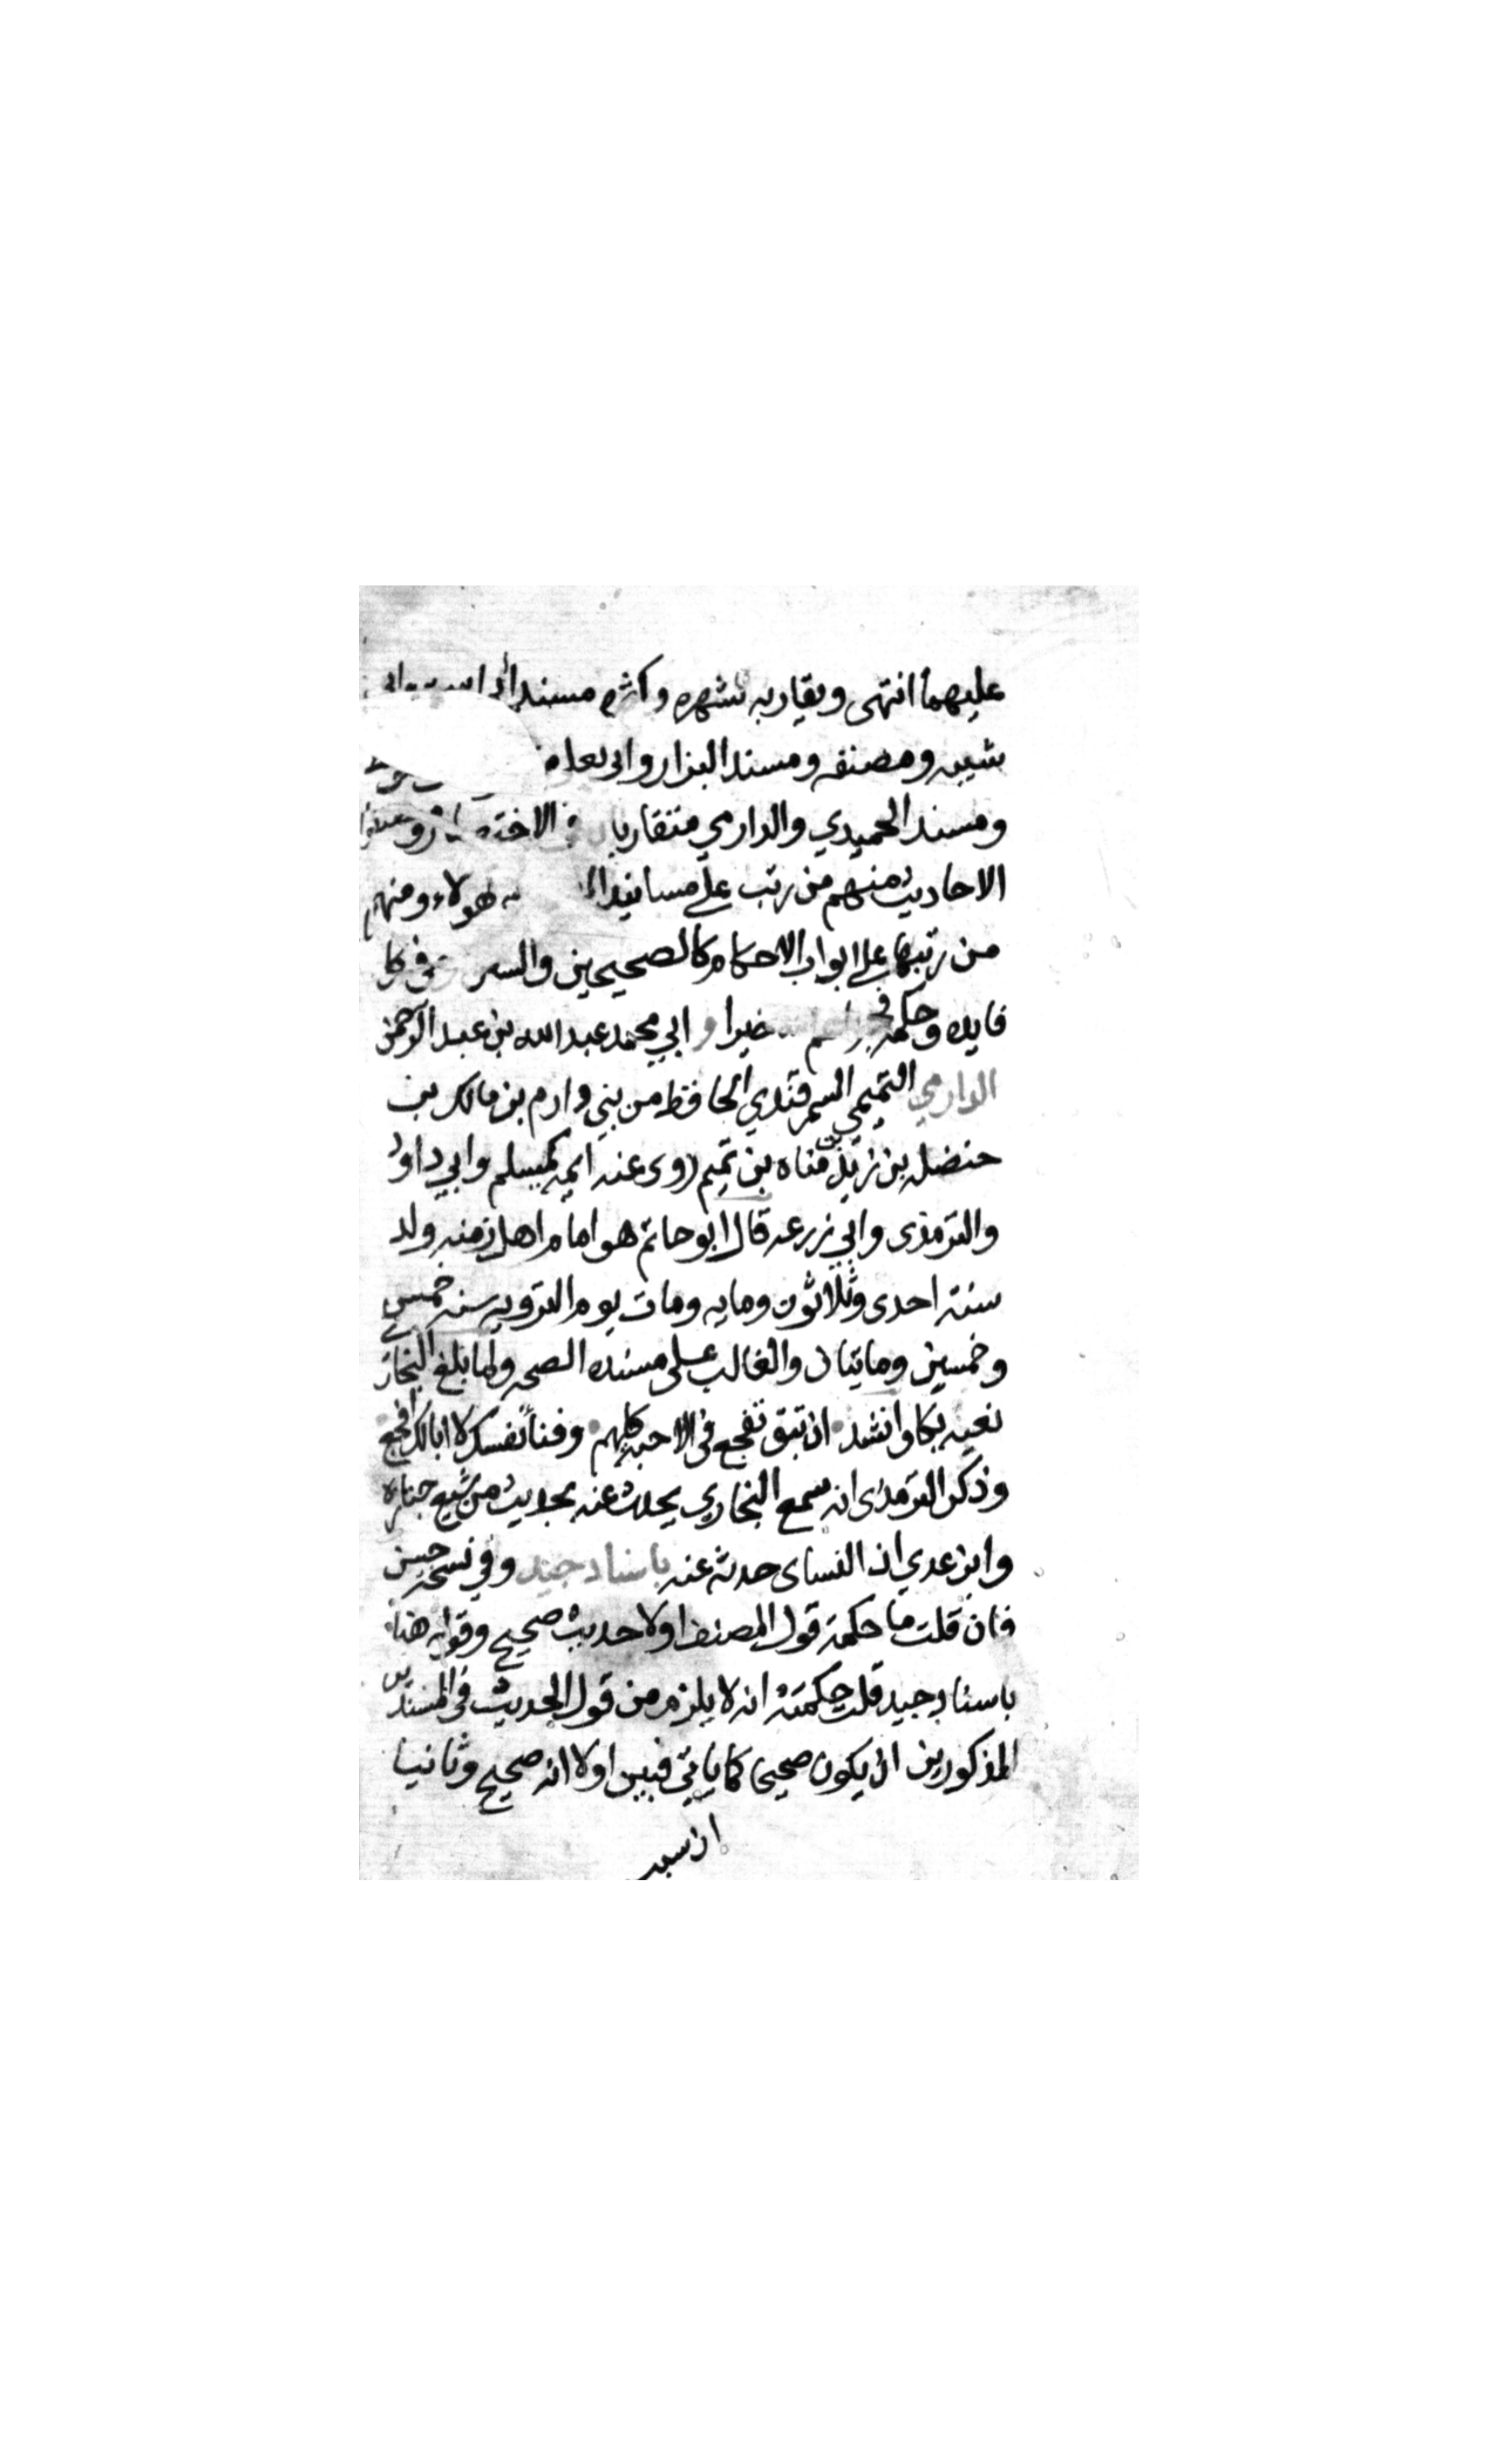 عليهما انتهى ويقاربه شهره وكثره مسند
شيبه ومصنفه ومسند البزار وابي يعلى
ومسند الحميدي والدارمي متقاربان في
الاحاديث منهم من رتب على مسانيد هولاء ومنهم
من رتبها على ابواب الاحكام كالصحيحين والسنن وفي كل
فايده وحكمة خيرا و ابي محمد عبد الله بن عبد الرحمن
الدارمي التميمي السمرقندي الحافظ من بني دارم بن مالك بن
حنضله بن زيد مناه بن تميم روى عنه ايمه كمسلم وابي داود
والترمذى وابي زرعه قال ابو حاتم هو امام اهل زمنه ولد
سنة احدى وثلاثون ومايه ومات يوم الترويه سنه خمس
وخمسين ومايتان والغالب على مسنده الصحه ولما بلغ البخاري
نعيه بكا وانشد ان تبق تفجع في الاحبة كلهم وفنأ نفسك لا ابالك افجع
وذكر الترمذى انه سمع البخاري يحدث عنه بحديث من شيع جنازه
وابن عدي ان النساى حدث عنه باسناد جيد وفي نسخه حسن
فان قلت ما حكمة قول المصنف اولا حديث صحيح وقوله هنا
باسناد جيد قلت حكمته انه لا يلزم من قول الحديث في المسندين
المذكورين ان يكون صحيحا كما ياتي فبين اولا انه صحيح وثانيا
ان سند